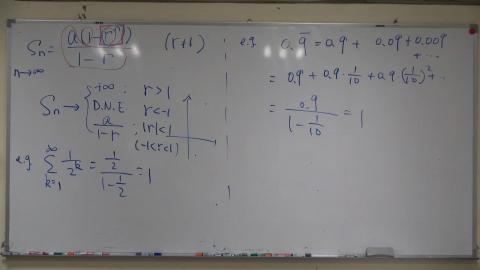 Sn = a(1-rⁿ) / 1-r (r≠1)
n→∞
Sn → { +∞ r>1
D.N.E r<-1
a/1-r |r|<1
(-1<r<1)
e.g ∞∑k=1 1/2ᵏ = 1/2 / 1-1/2 = 1
e.g 0.9̅ = 0.9 + 0.09 + 0.009
+ ...
= 0.9 + 0.9 · 1/10 + 0.9 (1/10)² + ..
= 0.9 / 1-1/10 = 1